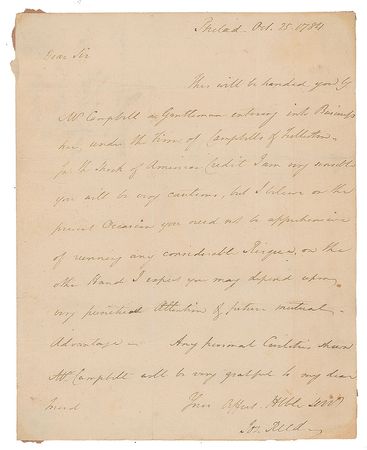 Philad. Oct. 25. 1784
Dear Sir
This will be handed you by
Mr Campbell a Gentleman entering into Business
here, under the Firm of Campbells &
In the State of American Credit I am very sensible
you will be very cautious, but I believe on the
present Occasion you need not be apprehensive
of running any considerable Risque, on the
other Hand I expect you may depend upon
very punctual Attention & future mutual
Advantage — Any personal Civilities shewn
Mr Campbell will be very grateful to my dear
friend
Your Affect. Hble Servt
Jos. Reed